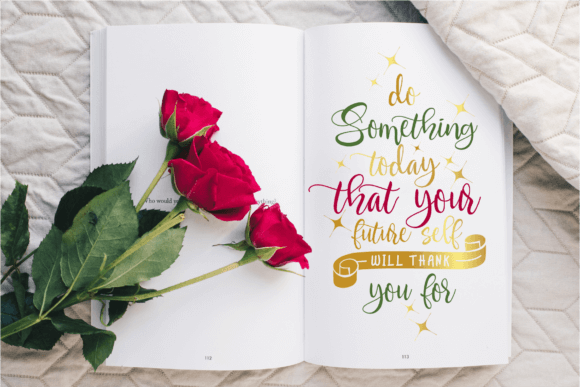 he would
112
do
Something
today
that your
future self
WILL THANK
you for
113